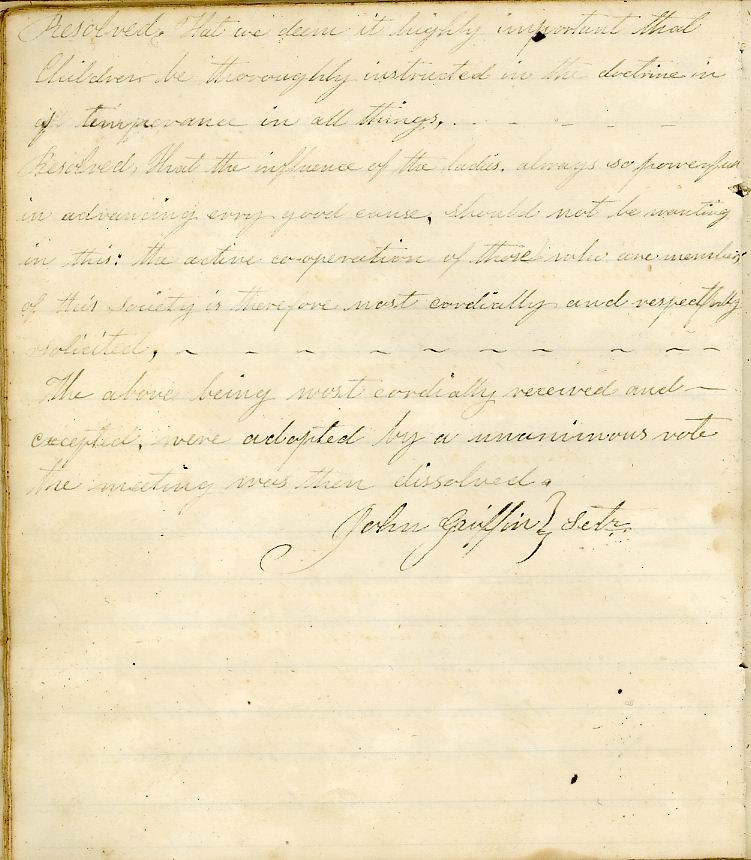 Resolved, That we deem it highly important that
Children be thoroughly instructed in the doctrine in
of temperance in all things, . - - - -
Resolved, That the influence of the ladies, always so powerful
in advancing evry good cause, should not be wanting
in this: the active co-operation of those who are members
of this society is therefore most cordially and respectfully
solicited, ~ ~ ~ ~ ~ ~ ~ ~ ~ ~
The above being most cordially received and —
excepted, were adopted by a unanimous vote
the meeting was then dissolved.
John Griffin } Setr.